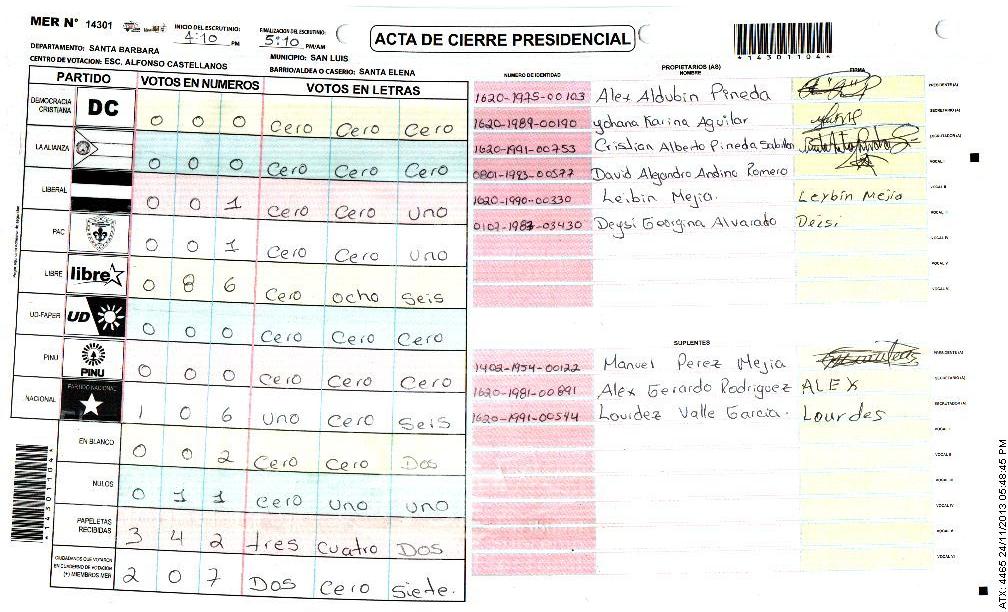 MER N° 14301
INICIO DEL ESCRUTINIO: 4:10 PM
FINALIZACION DEL ESCRUTINIO: 5:10 PM/AM
ACTA DE CIERRE PRESIDENCIAL
*14301104*
DEPARTAMENTO: SANTA BARBARA
MUNICIPIO: SAN LUIS
CENTRO DE VOTACION: ESC. ALFONSO CASTELLANOS
BARRIO/ALDEA O CASERIO: SANTA ELENA
PARTIDO VOTOS EN NUMEROS VOTOS EN LETRAS
DEMOCRACIA CRISTIANA DC 0 0 0 Cero Cero Cero
LA ALIANZA 0 0 0 Cero Cero Cero
LIBERAL 0 0 1 Cero Cero uno
PAC 0 0 1 Cero Cero uno
LIBRE libre 0 8 6 Cero ocho seis
UD-FAPER UD 0 0 0 Cero Cero Cero
PINU PINU 0 0 0 Cero Cero Cero
NACIONAL PARTIDO NACIONAL 1 0 6 uno Cero Seis
EN BLANCO 0 0 2 Cero Cero Dos
NULOS 0 1 1 Cero uno uno
PAPELETAS RECIBIDAS 3 4 2 tres cuatro Dos
CIUDADANOS QUE VOTARON EN CUADERNO DE VOTACION (+) MIEMBROS MER 2 0 7 Dos Cero Siete.
*14301104*
PROPIETARIOS (AS)
NUMERO DE IDENTIDAD NOMBRE FIRMA
1620-1975-00103 Alex Aldubin Pineda PRESIDENTE(A)
1620-1989-00190 yohana Karina Aguilar SECRETARIO(A)
1620-1991-00753 Cristian Alberto Pineda ESCRUTADOR(A)
0801-1983-00577 David Alejandro Andino Romero VOCAL I
1620-1990-00330 Leibin Mejia. Leybin Mejia VOCAL II
0107-1987-03430 Deysi Georgina Alvarado Deisi VOCAL III
VOCAL IV
VOCAL V
VOCAL VI
SUPLENTES
1402-1954-00122 Manuel Perez Mejia PRESIDENTE(A)
1620-1981-00891 Alex Gerardo Rodriguez ALEX SECRETARIO(A)
1620-1991-00544 Lourdez Valle Garcia. Lourdes ESCRUTADOR(A)
VOCAL I
VOCAL II
VOCAL III
VOCAL IV
VOCAL V
VOCAL VI
ATX: 4465 24/11/2013 05:48:45 PM